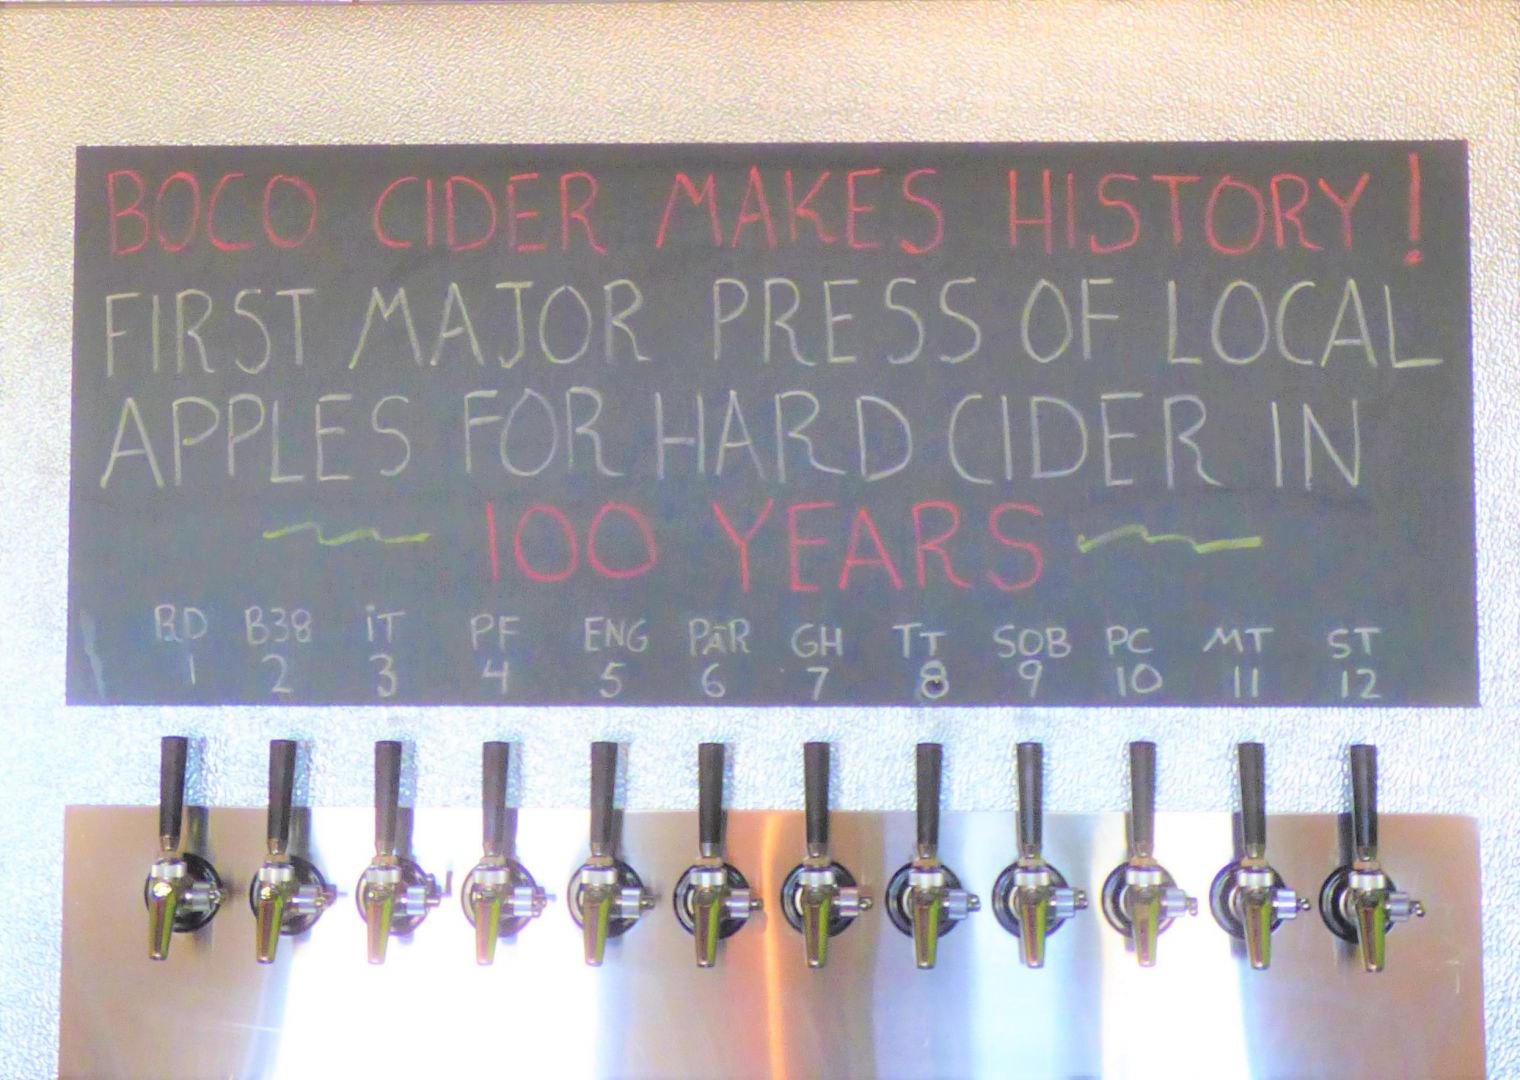 BOCO CIDER MAKES HISTORY!
FIRST MAJOR PRESS OF LOCAL
APPLES FOR HARD CIDER IN
100 YEARS
BD B38 iT PF ENG PäR GH TT SOB PC MT ST
1 2 3 4 5 6 7 8 9 10 11 12